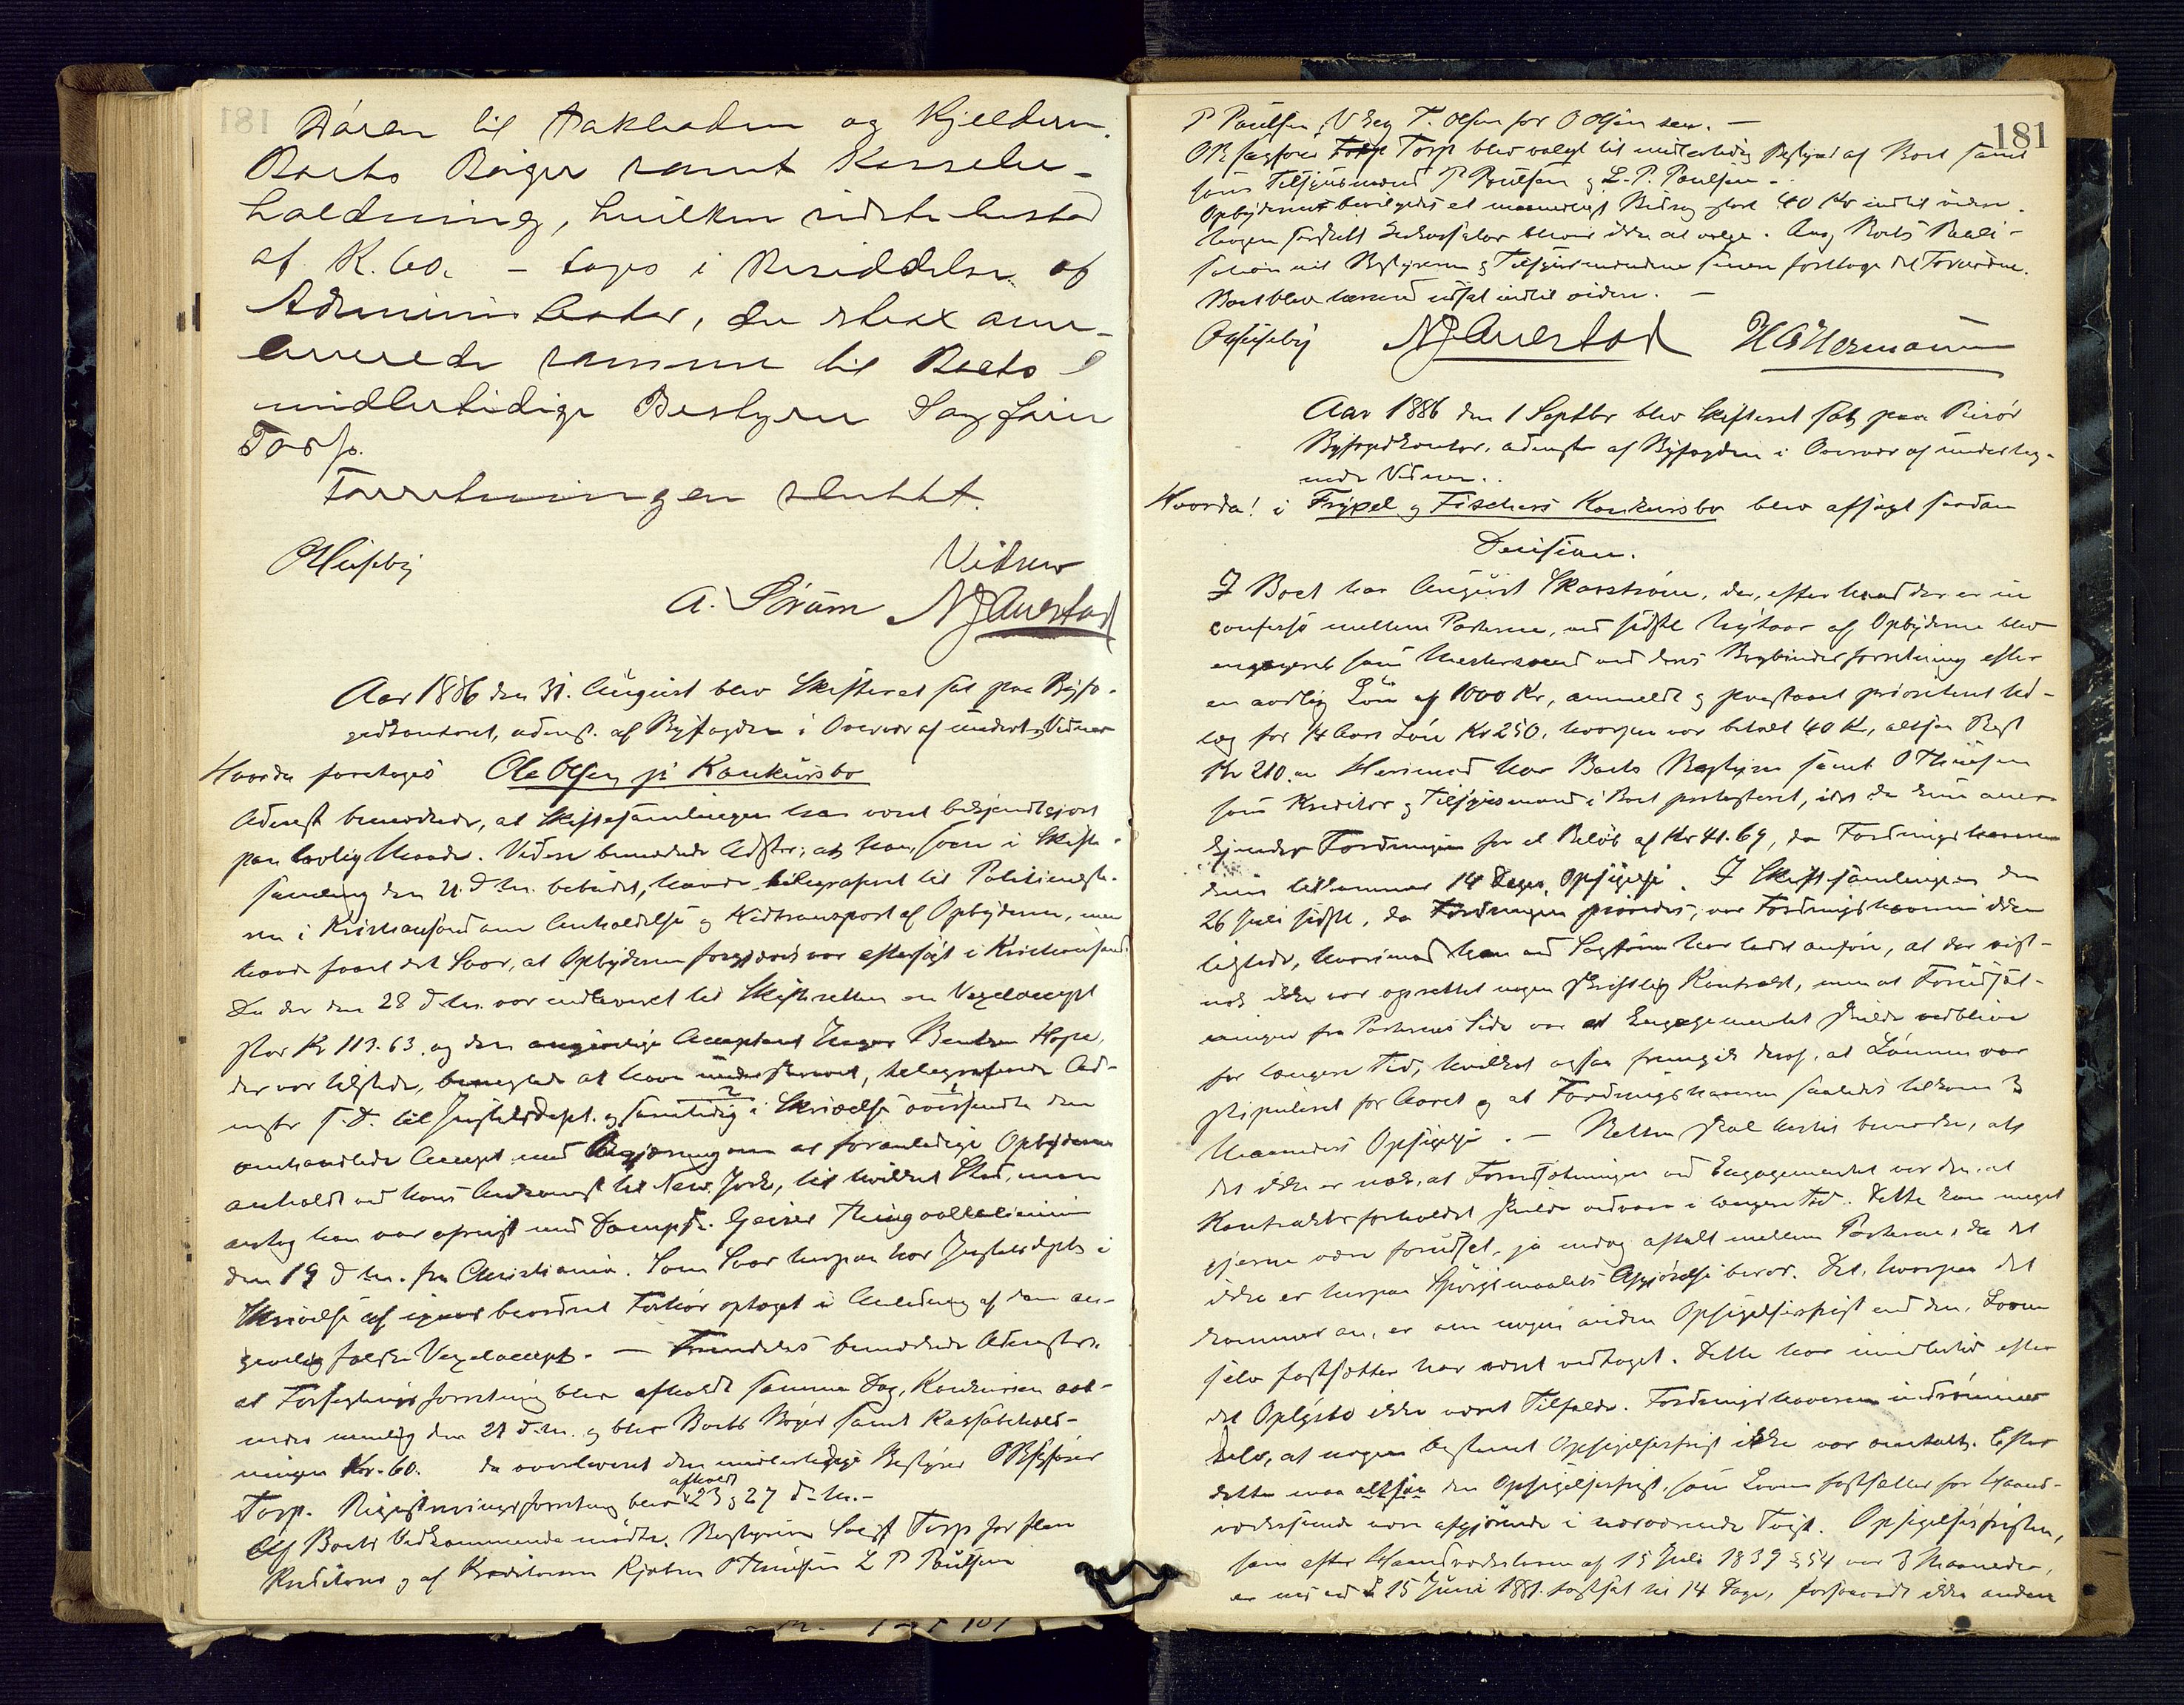 Døren til Pakboden og Kjelderen.
Boets Bøger samt Kassebe-
holdning, hvilken sidste bestod
af K. 60. – toges i Besiddelse af
Administrator, der strax over-
leverede samme til Boets
midlertidige Bestyrer Sagfører
Torp.
Forretningen sluttet.
OHuseby
Vidner
A. Sørum NJAuestad
Aar 1886 den 31. August blev Skifteret sat paa Byfo-
gedkontoret, admst. af Byfogden i Overvær af undert. Vidner
Hvorda foretoges Ole Olsen jr Konkursbo
Admst bemærkede, at Skiftesamlingen har været bekjendtgjort
paa lovlig Maade. Videre bemærkede Adstr, at han, som i Skifte-
samling den 21. d. M. bebudet, havde telegraferet til Politimeste-
ren i Kristiansand om Anholdelse og Hidtransport af Opbyderen, men
havde faaet det Svar, at Opbyderen forgjæves var eftersøgt i Kristiansand.
Da der den 28 d. M. var indleveret til Skifteretten en Vexelaccept
stor Kr 113.63, og den angivelige Acceptant Bentsen Hope,
der var tilstede, benegtede at have underskrevet, telegraferede Ad-
mstr s. D. til Justitsdept. og samtidig i Skrivelse oversendte den
omhandlede Accept med Begjæring om at foranledige Opbyderen
anholdt ved hans Ankomst til New York, til hvilket Sted, man
antog han var afreist med Dampsk. Geiser Thingvallalinien
den 19 d. M. fra Christiania. Som Svar herpaa har Justitsdepts i
Skrivelse af igaar beordret Forhør optaget i Anledning af den an-
givelig falske Vexelaccept. – Fremdeles bemærkede Admstr.
at Forseglingsforretning blev afholdt samme Dag, Konkursen aab-
nedes nemlig den 21 d. M. og blev Boets Bøger samt Kassebehold-
ningen Kr. 60. da overleveret den midlertidige Bestyrer ORsagfører
Torp. Registreringsforretning blev afholdt 23 og 27 d. M. –
Af Boets Vedkommende mødte, Bestyreren Sagf Torp for flere
Kreditorer og af Kreditorerne Kjøbm O Thuesen L P Paulsen
181
P Paulsen, T. Olsen for O Olsen sen. –
ORsagfører Torp blev valgt til midlertidig Bestyrer af Boet samt
som Tilsynsmænd P Paulsen og L. P. Paulsen –
Opbyderens bevilgedes et maanedligt Bidrag stort 40 Kr indtil videre.
Nogen særskilt Inkassator bliver ikke at vælge. Ang Boets Reali-
sation vil Bestyreren og Tilsynsmændene senere foretage det Fornødne.
Boet blev hermed udsat indtil videre. –
OHuseby NJAuestad HGHermann
Aar 1886 den 1 Septbr blev Skifteret sat paa Risør
Byfogedkontor, admstr af Byfogden i Overvær af underteg-
nede Vidner..
Hvorda! i Frypel og Fischers Konkursbo blev afsagt saadan
Decision.
I Boet har August Skarstrøm, der, efter hvad der er in
confesso mellem Parterne, ved sidste Nytaar af Opbyderne blev
engageret som Mestersvend ved deres Bogbinderforretning efter
en aarlig Løn af 1000 Kr, anmeldt og paastaaet prioriteret Ud-
læg for 1/4 Aars Løn Kr 250, hvorpaa var betalt 40 Kr, altsaa Rest
Kr 210. – Herimod har Boets Bestyrer samt O Thuesen
som Kreditor og Tilsynsmand i Boet protesteret, idet de kun aner-
kjender Fordringen for et Beløb af Kr 41.69, da Fordringshaveren
kun tilkommer 14 Dages Opsigelse. I Skiftesamlingen den
26 Juli sidstl, da Fordringen prøvedes, var Fordringshaveren ikke
tilstede, hvorimod han ved Sagfører har ladet anføre, at der vist-
nok ikke var oprettet nogen skriftlig Kontrakt, men at Forudsæt-
ningen fra Parternes Side var at Engagementet skulde vedblive
for længere Tid, hvilket ogsaa fremgik deraf, at Lønnen var
stipuleret for Aaret og at Fordringshaveren saaledes tilkom 3
Maaneders Opsigelse. – Retten skal hertil bemærke, at
det ikke er nok, at Forudsætningen ved Engagementet var den, at
Kontraktsforholdet skulde vedvare i længere Tid. Dette kan meget
gjerne være forudsat, ja endog aftalt mellem Parterne, da det
ikke er herpaa Spørgsmaalets Afgjørelse beror. Det, hvorpaa det
kommer an, er om nogen anden Opsigelsesfrist end den, Loven
selv fastsætter har været vedtaget. Dette har imidlertid efter
det Oplyste ikke været Tilfælde. Fordringshaveren indrømmer
selv, at nogen bestemt Opsigelsesfrist ikke var omtalt. Efter
dette maa altsaa den Opsigelsesfrist, som Loven fastsætter for Haand-
værkssvende være afgjørende i nærværende Tvist. Opsigelsesfristen,
som efter Haandværksloven af 15 Juli 1839 § 54 var 3 Maaneder,
er nu ved L 15 Juni 1881 fastsat til 14 Dage, forsaavidt ikke anden